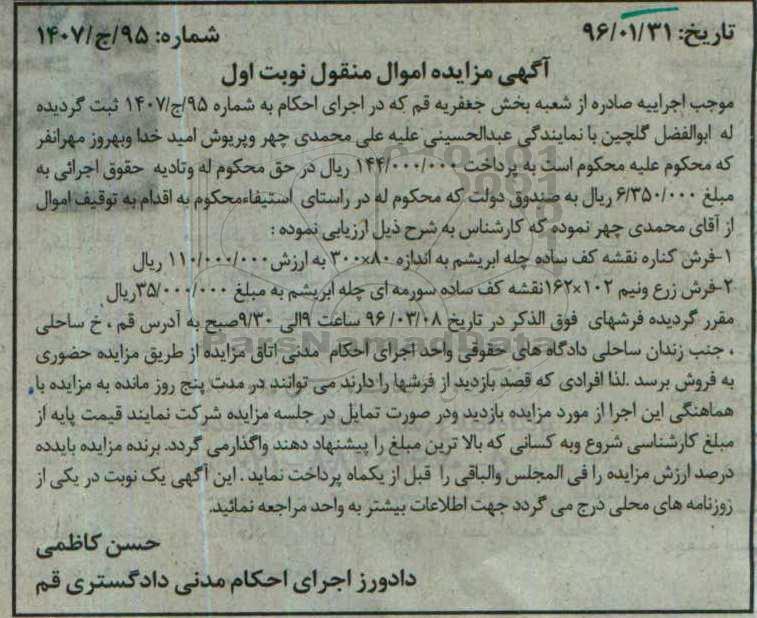 تاریخ: ۹۶/۰۱/۳۱
شماره: ۹۵/ج/۱۴۰۷
آگهی مزایده اموال منقول نوبت اول
موجب اجراییه صادره از شعبه بخش جعفریه قم که در اجرای احکام به شماره ۹۵/ج/۱۴۰۷ ثبت گردیده
له ابوالفضل گلچین با نمایندگی عبدالحسینی علیه علی محمدی چهر وپریوش امید خدا وبهروز مهرانفر
که محکوم علیه محکوم است به پرداخت ۱۴۴/۰۰۰/۰۰۰ ریال در حق محکوم له وتادیه حقوق اجرائی به
مبلغ ۶/۳۵۰/۰۰۰ ریال به صندوق دولت که محکوم له در راستای استیفاءمحکوم به اقدام به توقیف اموال
از آقای محمدی چهر نموده که کارشناس به شرح ذیل ارزیابی نموده :
۱-فرش کناره نقشه کف ساده چله ابریشم به اندازه ۸۰×۳۰۰ به ارزش۱۱۰/۰۰۰/۰۰۰ ریال
۲-فرش زرع ونیم ۱۰۲×۱۶۲نقشه کف ساده سورمه ای چله ابریشم به مبلغ ۳۵/۰۰۰/۰۰۰ریال
مقرر گردیده فرشهای فوق الذکر در تاریخ ۹۶/۰۳/۰۸ ساعت ۹الی ۹/۳۰صبح به آدرس قم ، خ ساحلی
، جنب زندان ساحلی دادگاه های حقوقی واحد اجرای احکام مدنی اتاق مزایده از طریق مزایده حضوری
به فروش برسد .لذا افرادی که قصد بازدید از فرشها را دارند می توانند در مدت پنج روز مانده به مزایده با
هماهنگی این اجرا از مورد مزایده بازدید ودر صورت تمایل در جلسه مزایده شرکت نمایند قیمت پایه از
مبلغ کارشناسی شروع وبه کسانی که بالا ترین مبلغ را پیشنهاد دهند واگذارمی گردد. برنده مزایده بایدده
درصد ارزش مزایده را فی المجلس والباقی را قبل از یکماه پرداخت نماید . این آگهی یک نوبت در یکی از
روزنامه های محلی درج می گردد جهت اطلاعات بیشتر به واحد مراجعه نمائید.
حسن کاظمی
دادورز اجرای احکام مدنی دادگستری قم
ParsNamadData